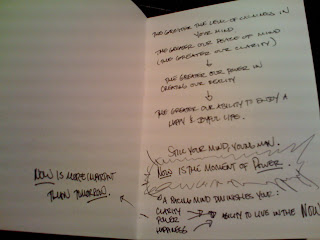 THE GREATER THE LEVEL OF CALMNESS IN
YOUR MIND
THE GREATER OUR PEACE OF MIND
(AND GREATER OUR CLARITY)
↓
THE GREATER OUR POWER IN
CREATING OUR REALITY
↓
THE GREATER OUR ABILITY TO ENJOY A
HAPPY & JOYFUL LIFE.
STILL YOUR MIND, YOUNG MAN.
NOW IS THE MOMENT OF POWER.
A RACING MIND DIMINISHES YOUR:
CLARITY
POWER → ABILITY TO LIVE IN THE NOW
HAPPINESS
NOW IS MORE
THAN TOMORROW.